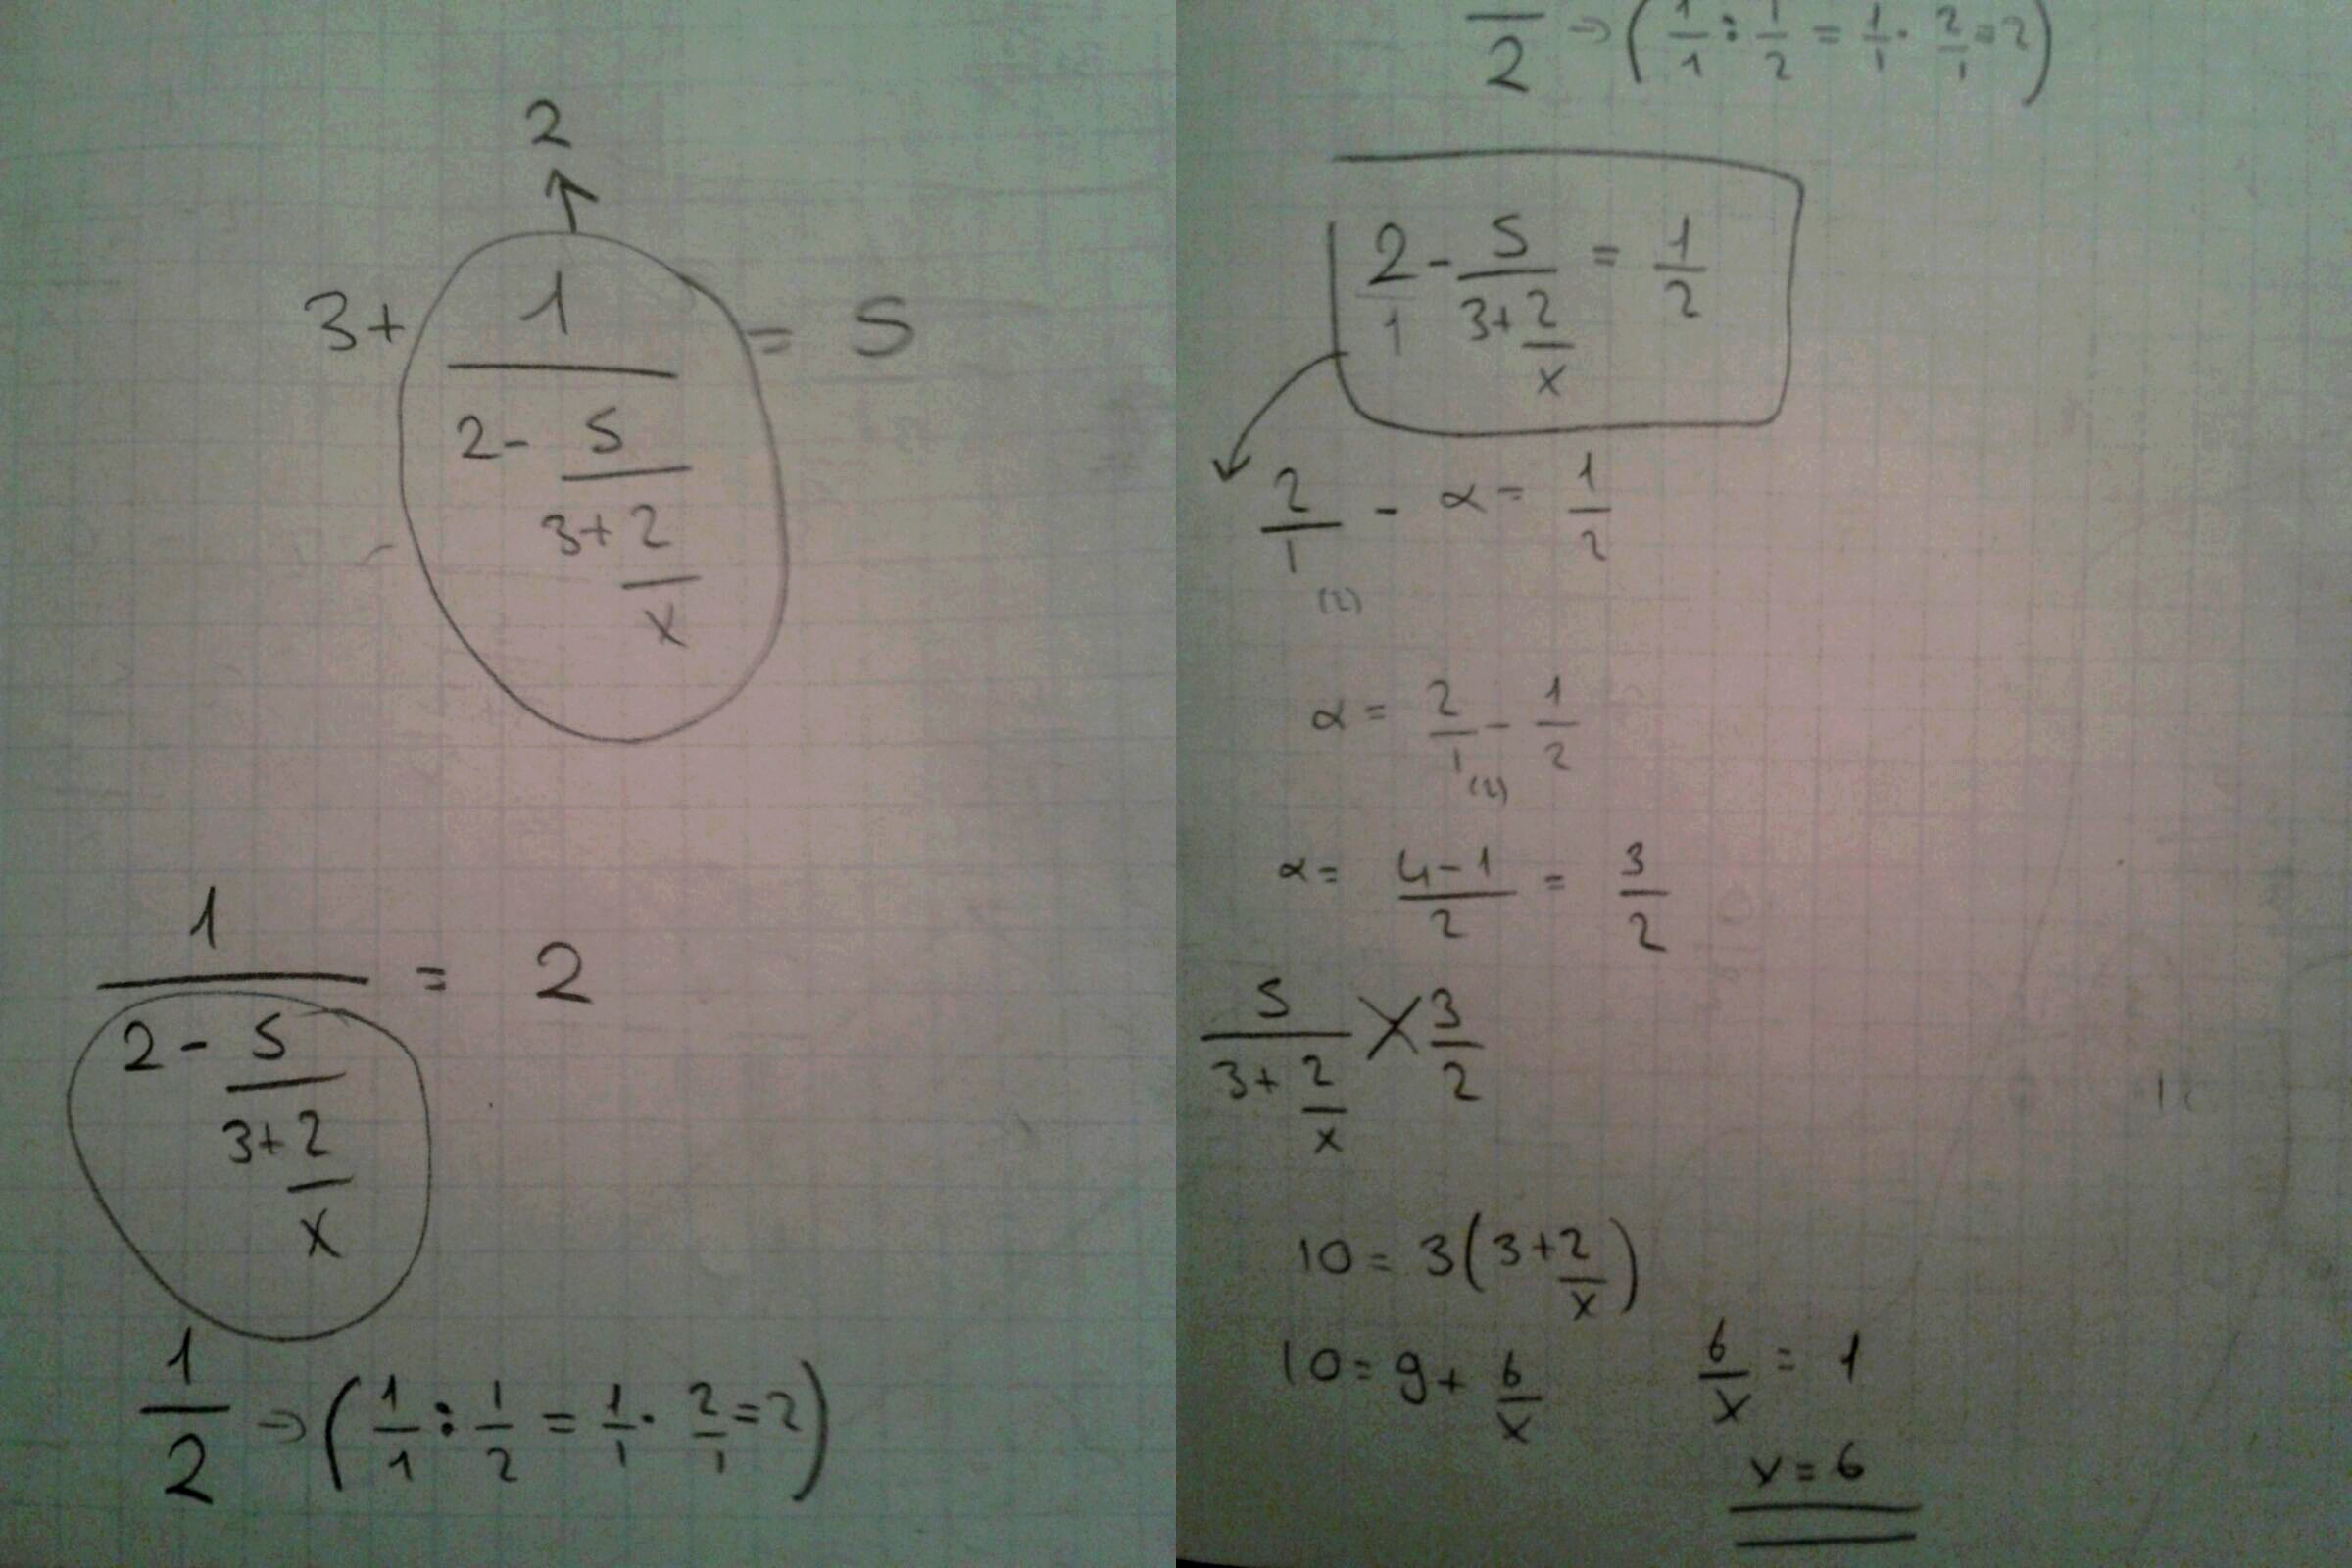 2
3+ 1 = 5
2- 5
3+ 2
x
1 = 2
2- 5
3+ 2
x
1/2 → (1/1 : 1/2 = 1/1 · 2/1 = 2)
2 → (1/1 : 1/2 = 1/1 · 2/1 = 2)
2/1 - 5/(3+2/x) = 1/2
2/1 - α = 1/2
(2)
α = 2/1 - 1/2
(2)
α = (4-1)/2 = 3/2
5/(3+2/x) X 3/2
10 = 3(3+2/x)
10 = 9 + 6/x 6/x = 1
x = 6